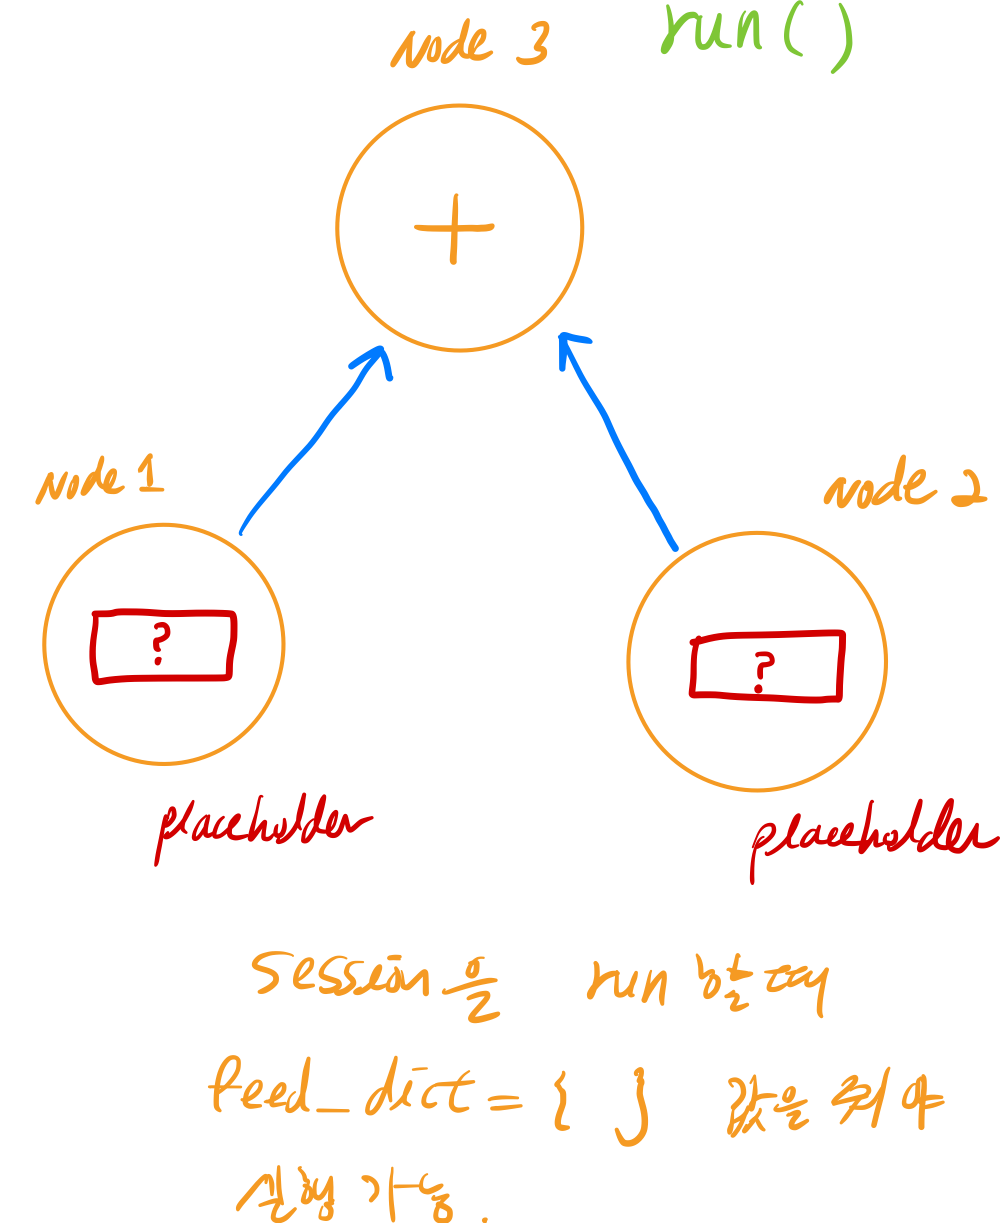 node 3 run()
+
node 1
node 2
?
?
placeholder
placeholder
session을 run 할 때
feed_dict = { } 값을 줘야
실행 가능.